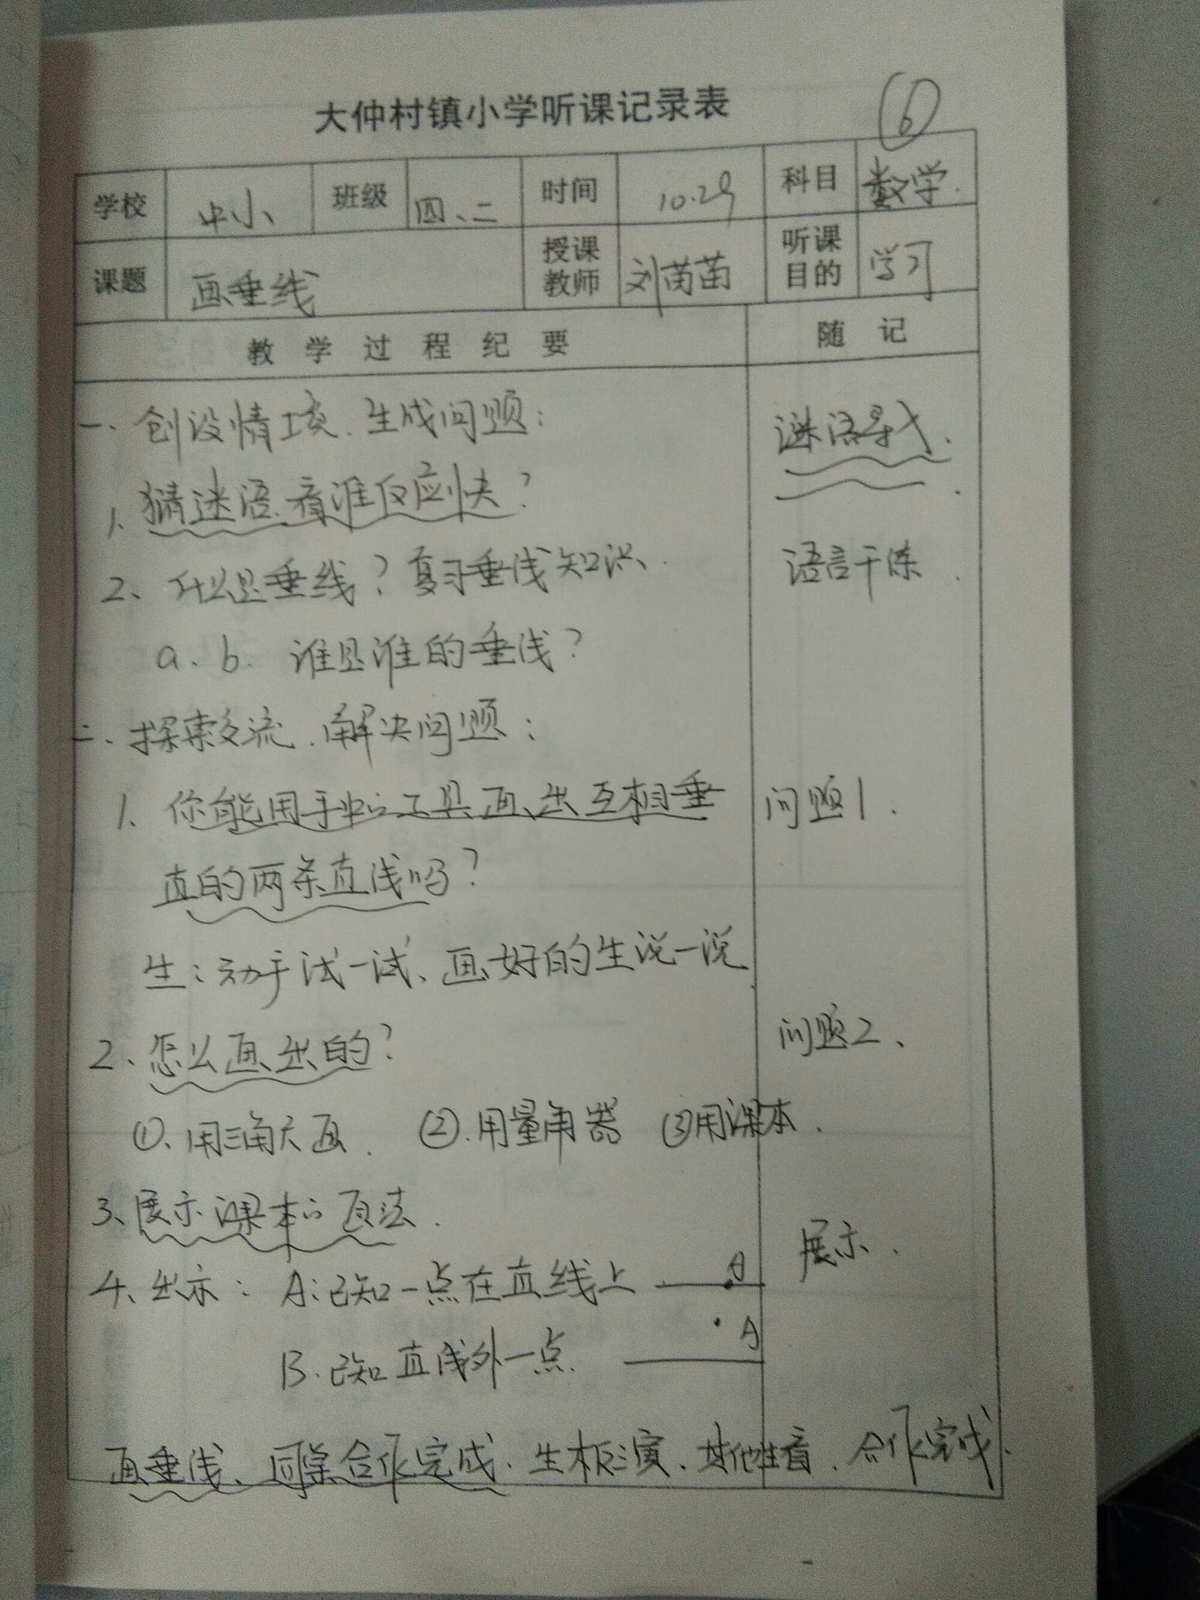 大仲村镇小学听课记录表
6
学校 中小 班级 四、二 时间 10.29 科目 数学.
课题 画垂线 授课教师 刘茵苗 听课目的 学习
教学过程纪要 随记
一、创设情境、生成问题： 谜语导入.
1、猜迷语.看谁反应快？
2、什么是垂线？复习垂线知识. 语言干练.
a.b. 谁是谁的垂线？
二、探索交流.解决问题：
1、你能用手中的工具画出互相垂 问题1.
直的两条直线吗？
生：动手试一试、画好的生说一说
2、怎么画出的？ 问题2、
①、用三角尺画. ②.用量角器 ③用课本.
3、展示课本的画法. 展示.
4、出示： A:已知一点在直线上 A
B.已知直线外一点. A
画垂线、同桌合作完成.生板演、其他生看.合作完成.